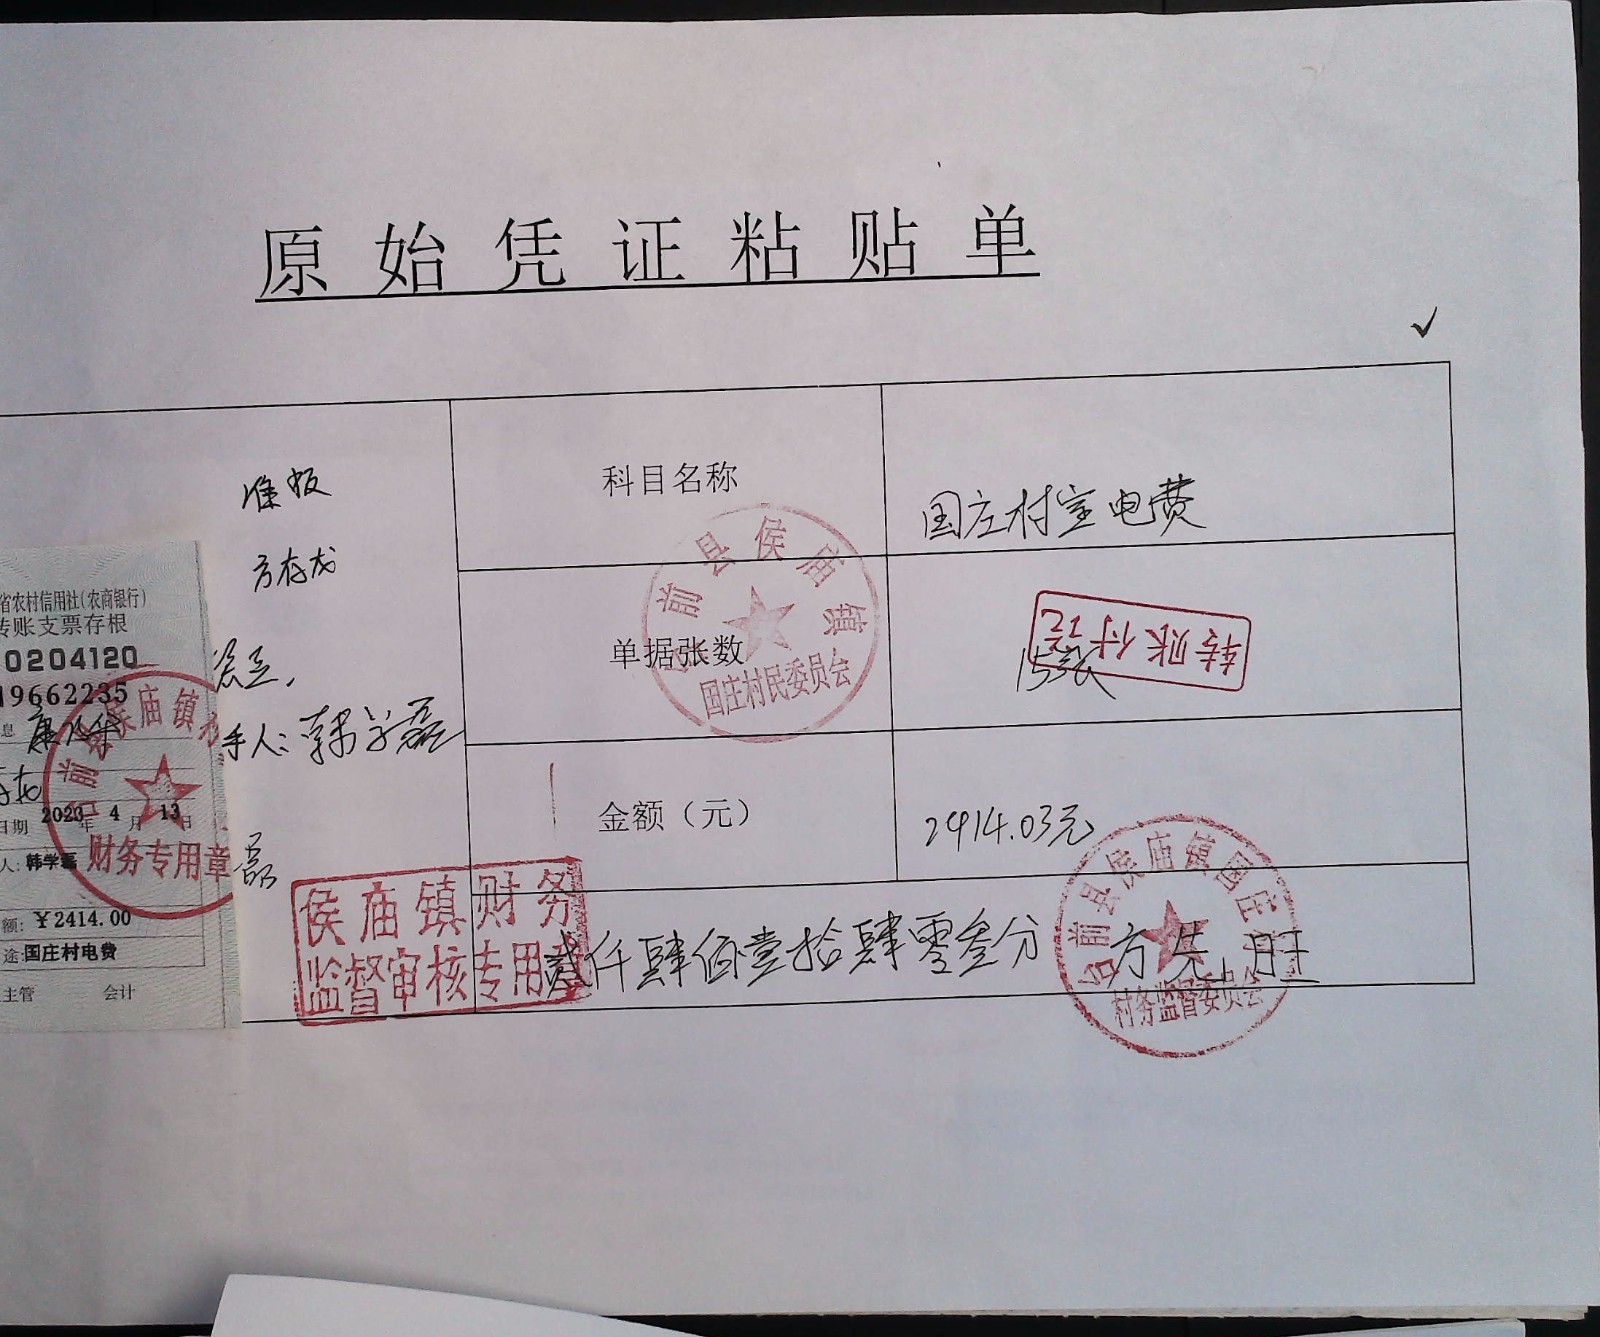 原始凭证粘贴单
✓
准报
方存龙
手人：韩学磊
磊
科目名称
国庄村室电费
单据张数
15张
转账付讫
金额（元）
2414.03元
贰仟肆佰壹拾肆零叁分
方先旺
台前县侯庙镇
国庄村民委员会
台前县侯庙镇国庄
村务监督委员会
侯庙镇财务
监督审核专用章
省农村信用社（农商银行）
转账支票存根
0204120
19662235
息
日期 2023年4月13日
人：韩学磊
额：￥2414.00
途：国庄村电费
主管 会计
台前县侯庙镇
财务专用章